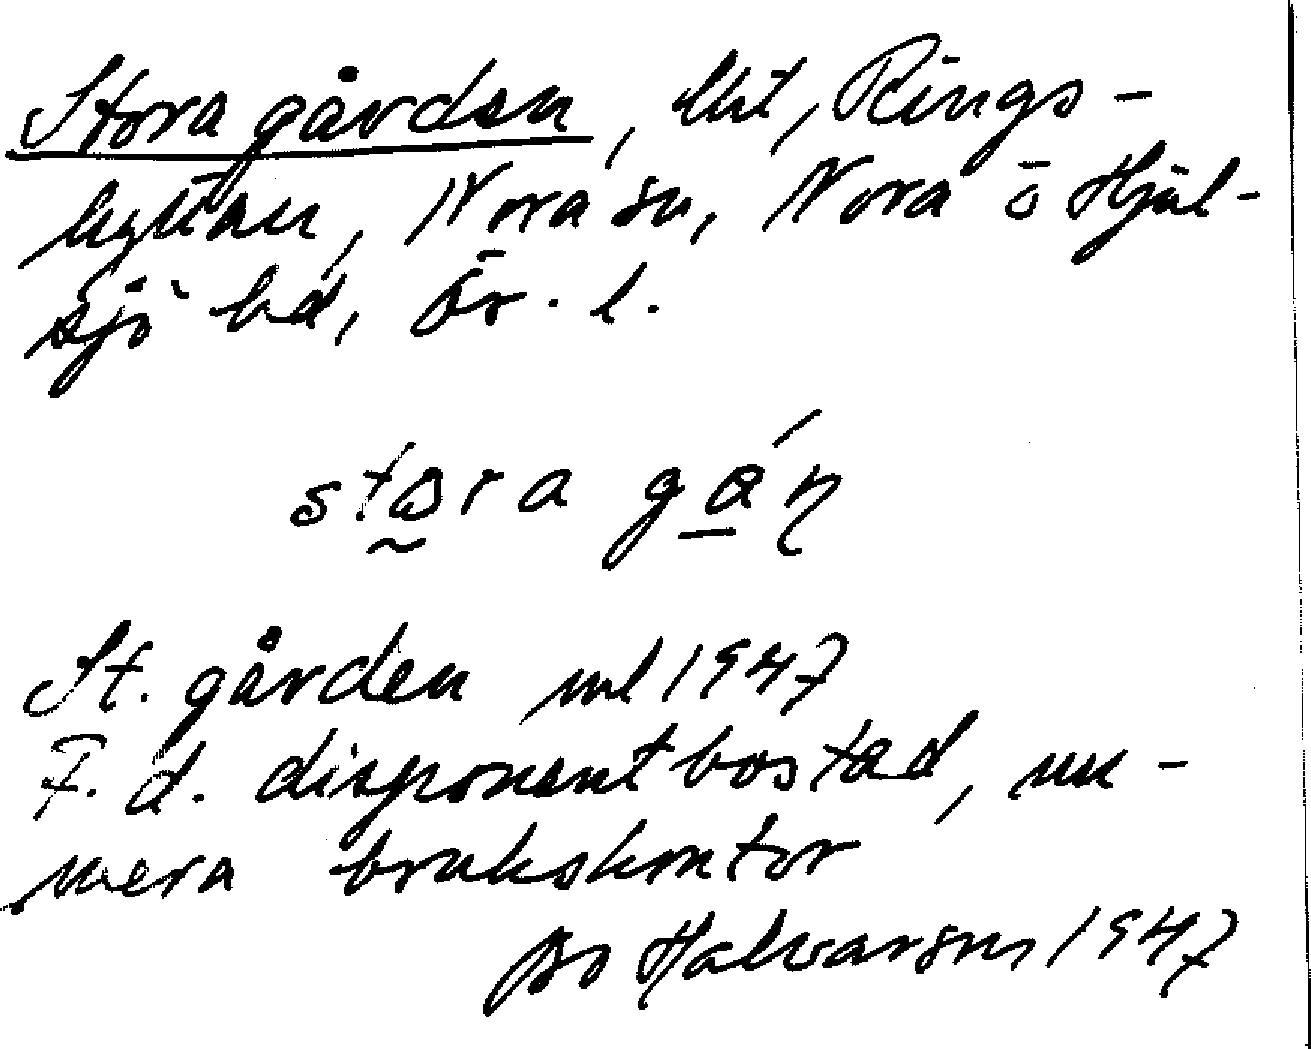 Stora gården, lht, Rings-
hyttan, Nora sn, Nora o Hjul-
sjö bd, Ör. l.
stɷra gán
St. gården uml 1947
F. d. disponentbostad, nu-
mera brukskontor
Bo Halvarson 1947